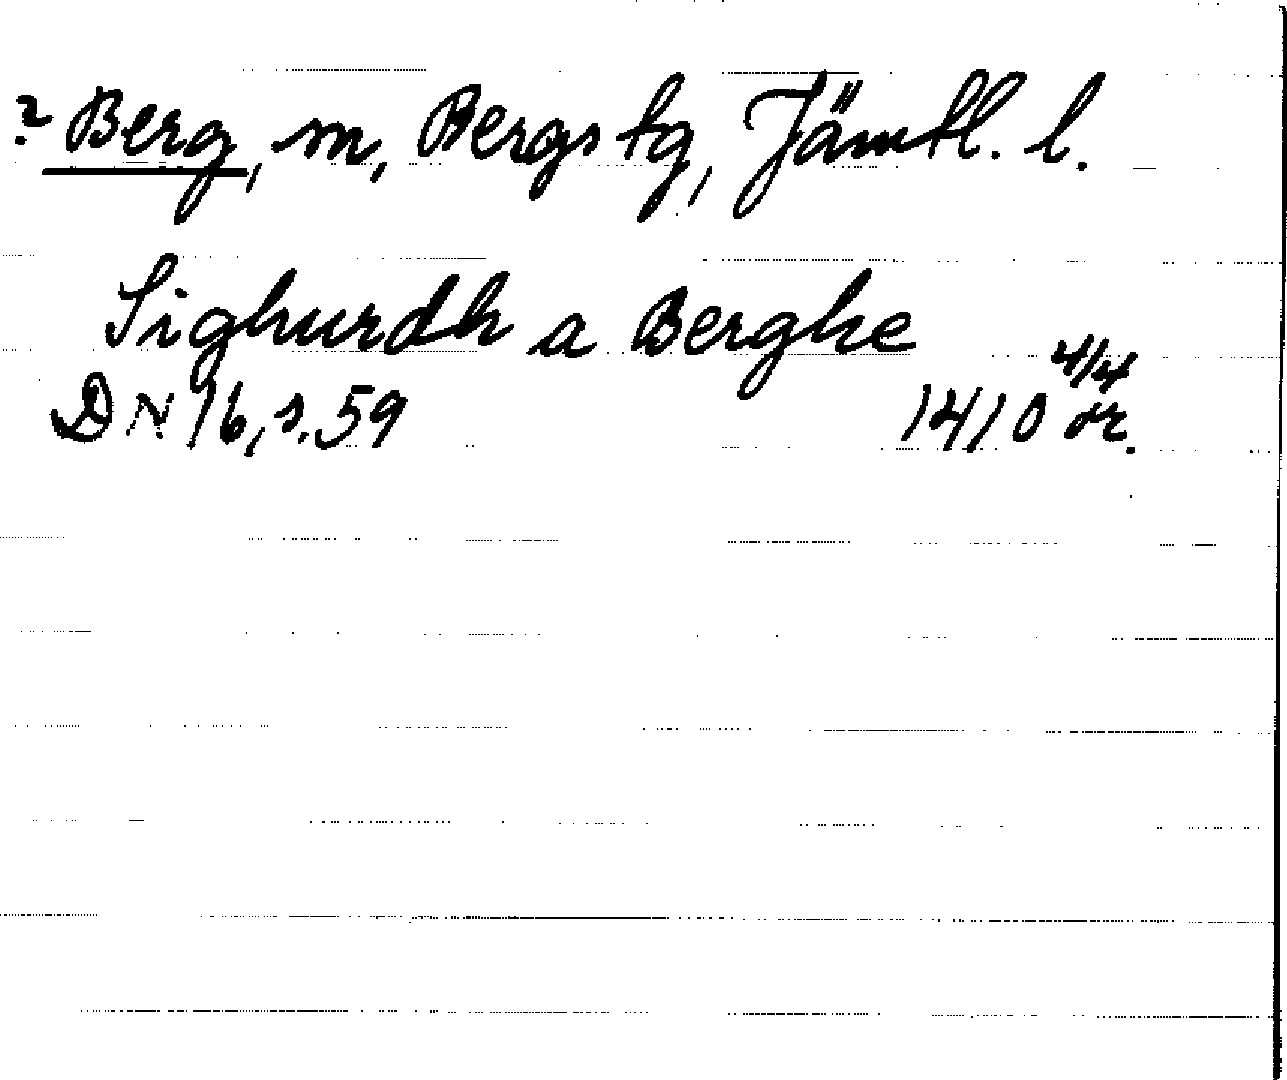 ? Berg, sn, Bergs tg, Jämtl. l.
Sighurdh a Berghe
DN 16, s. 59 1410 4/4 or.